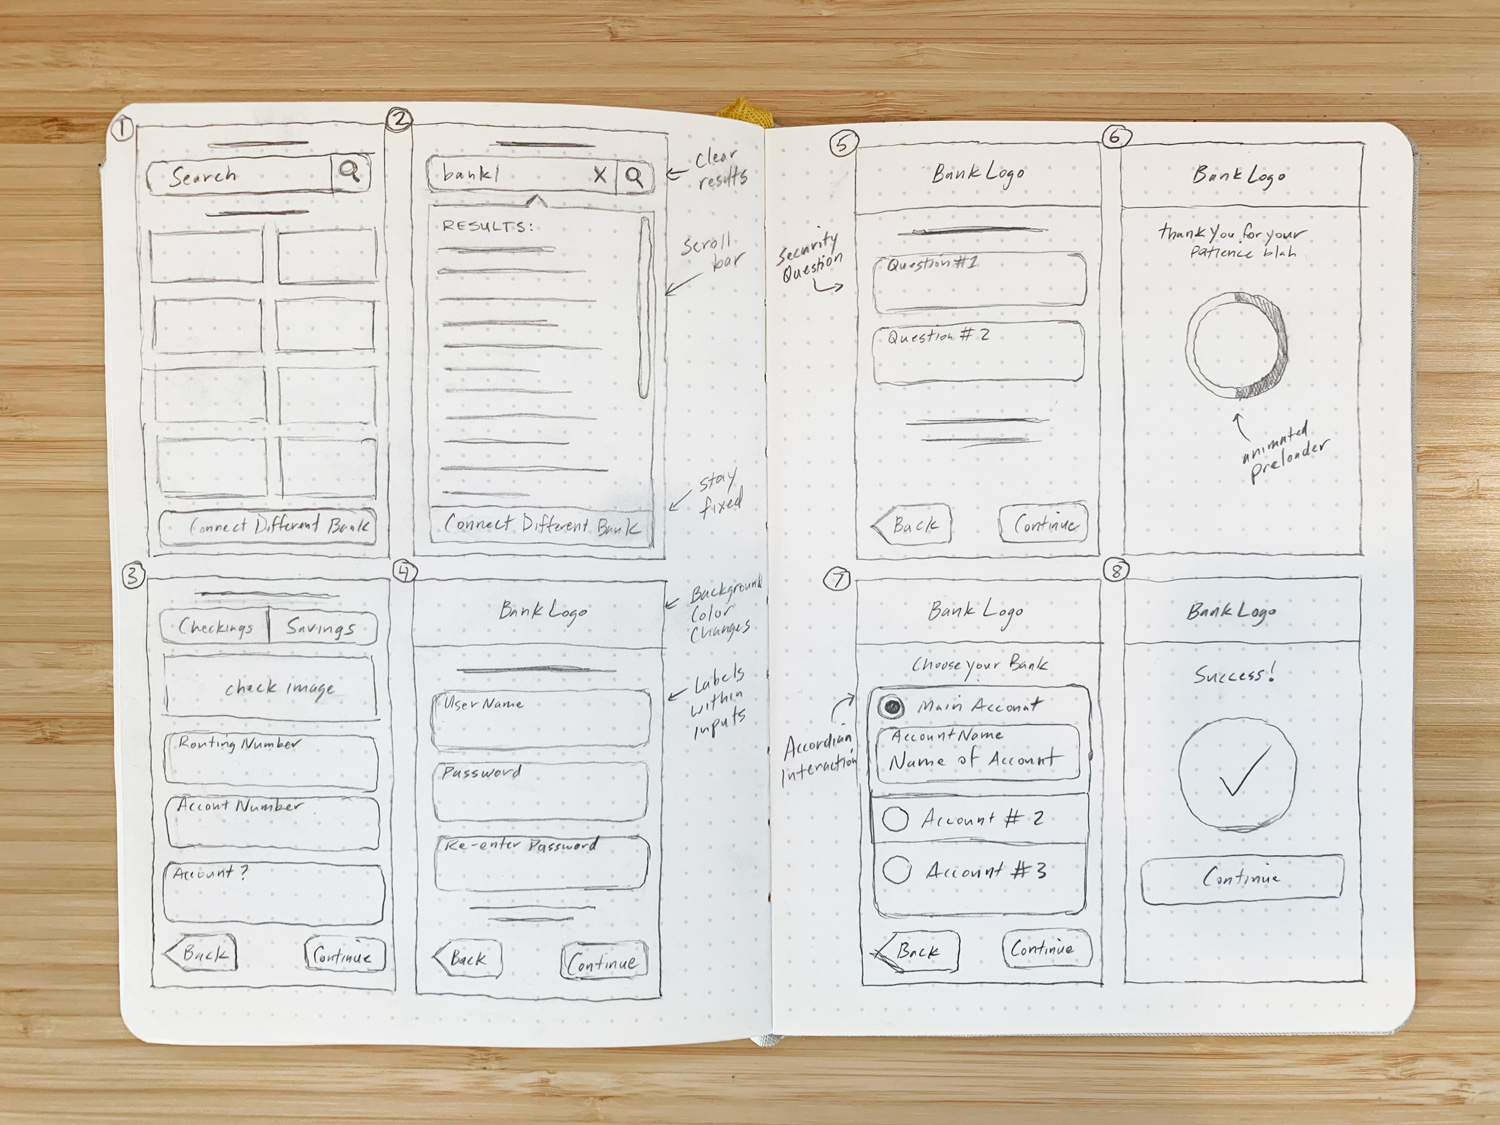 1
Search
Connect Different Bank
2
bank|
RESULTS:
Connect Different Bank
Clear
results
Scroll
bar
stay
fixed
3
Checkings
Savings
check image
Routing Number
Account Number
Account?
Back
Continue
4
Bank Logo
User Name
Password
Re-enter Password
Back
Continue
Background
Color
Changes
Labels
within
inputs
5
Bank Logo
Question #1
Question # 2
Back
Continue
Security
Question
6
Bank Logo
thank you for your
patience blah
animated
preloader
7
Bank Logo
Choose your Bank
Main Account
Account Name
Name of Account
Account # 2
Account # 3
Back
Continue
Accordian
interaction
8
Bank Logo
Success!
Continue